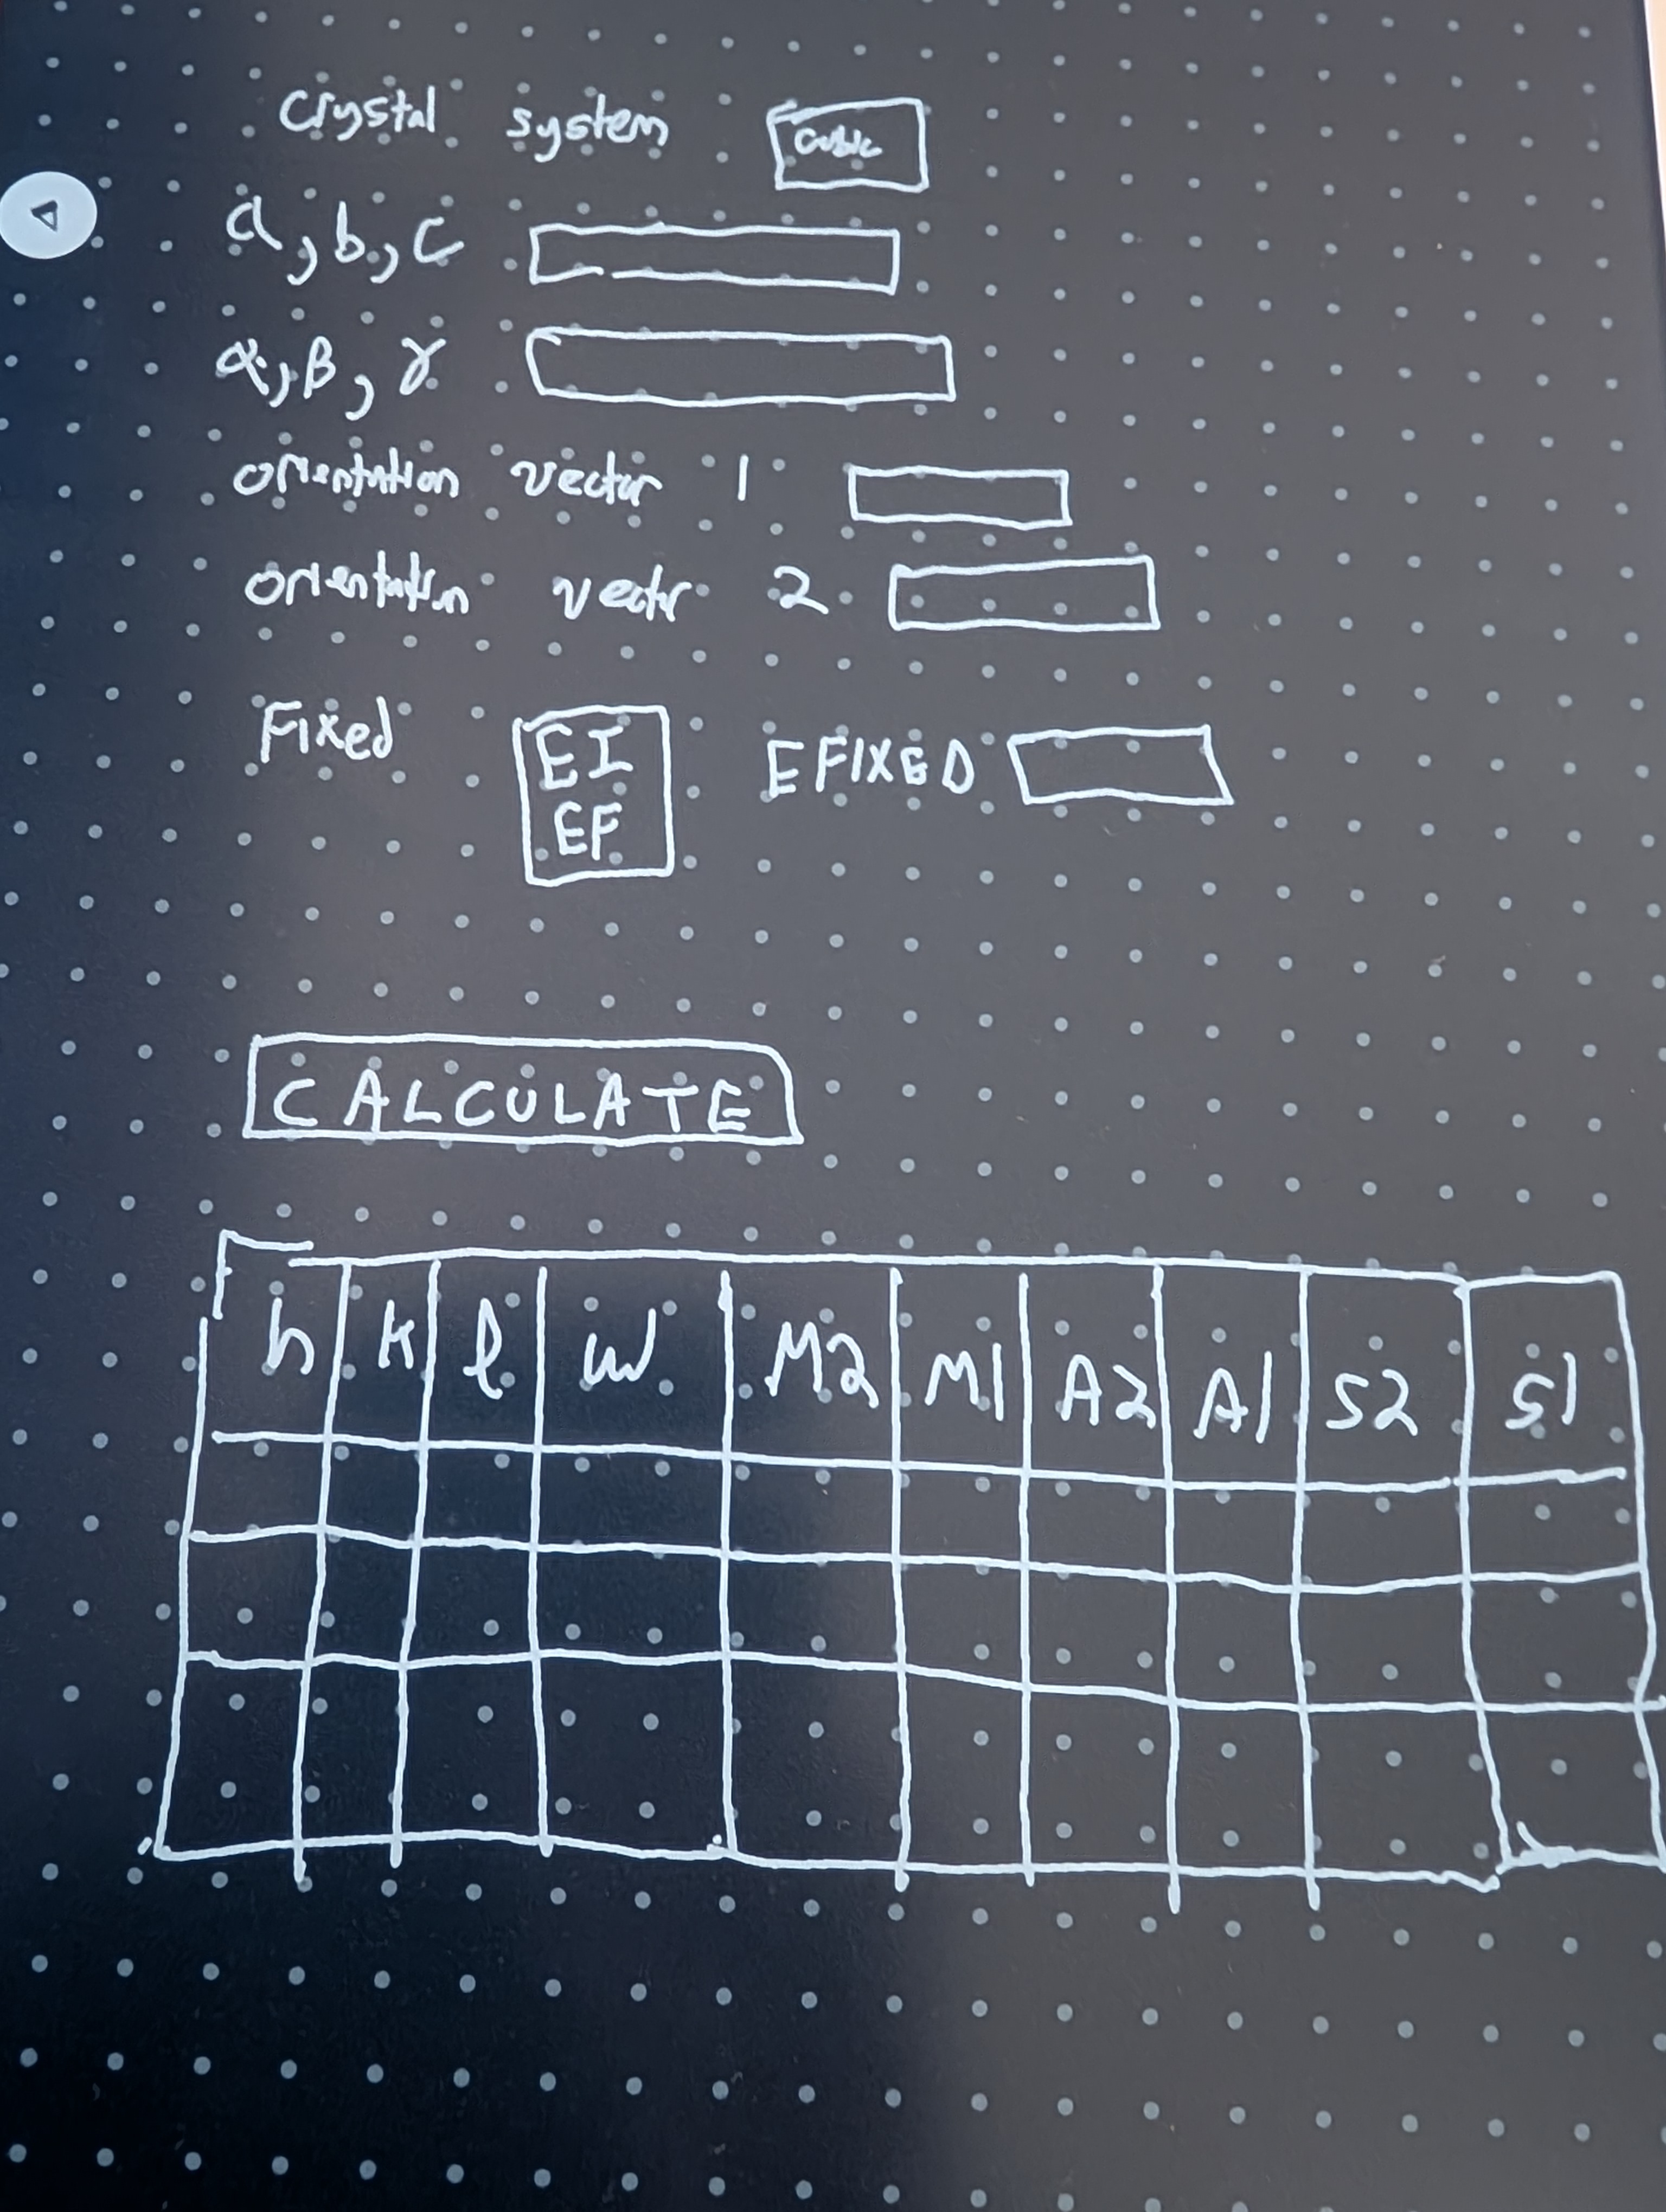 Crystal system Cubic
a, b, c
α, β, γ
orientation vector 1
orientation vector 2
Fixed EI EFIXED
EF
CALCULATE
h k l w M2 M1 A2 A1 S2 S1